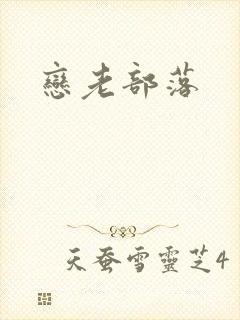 戀老部落
天蚕雪靈芝4